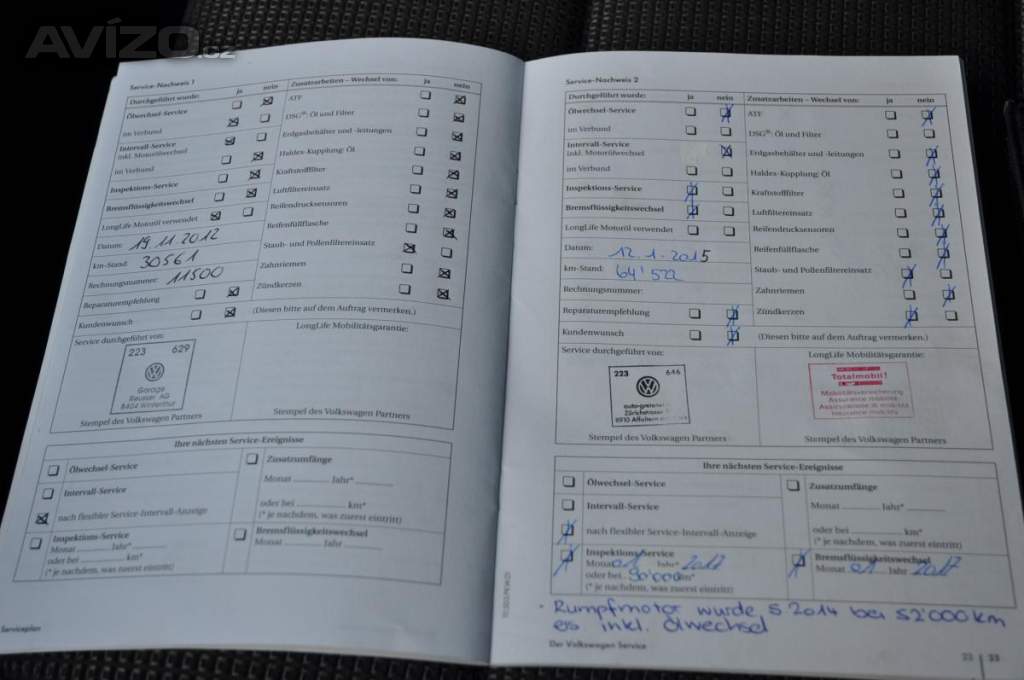 AVÍZO.cz
Service-Nachweis 1
Durchgeführt wurde: ja nein Zusatzarbeiten – Wechsel von: ja nein
Ölwechsel-Service ATF
im Verbund DSG®: Öl und Filter
Intervall-Service Erdgasbehälter und -leitungen
inkl. Motorölwechsel Haldex-Kupplung: Öl
im Verbund Kraftstofffilter
Inspektions-Service Luftfiltereinsatz
Bremsflüssigkeitswechsel Reifendrucksensoren
LongLife Motoröl verwendet Reifenfüllflasche
Datum: 19.11.2012 Staub- und Pollenfiltereinsatz
km-Stand: 30561 Zahnriemen
Rechnungsnummer: 11500 Zündkerzen
Reparaturempfehlung
Kundenwunsch (Diesen bitte auf dem Auftrag vermerken.)
Service durchgeführt von: LongLife Mobilitätsgarantie:
223 629
Garage
Reusser AG
8404 Winterthur
Stempel des Volkswagen Partners Stempel des Volkswagen Partners
Ihre nächsten Service-Ereignisse
Ölwechsel-Service Zusatzumfänge
Intervall-Service Monat Jahr*
nach flexibler Service-Intervall-Anzeige oder bei km*
(* je nachdem, was zuerst eintritt)
Inspektions-Service Bremsflüssigkeitswechsel
Monat Jahr* Monat Jahr
oder bei km*
(* je nachdem, was zuerst eintritt)
Serviceplan
Service-Nachweis 2
Durchgeführt wurde: ja nein Zusatzarbeiten – Wechsel von: ja nein
Ölwechsel-Service ATF
im Verbund DSG®: Öl und Filter
Intervall-Service Erdgasbehälter und -leitungen
inkl. Motorölwechsel Haldex-Kupplung: Öl
im Verbund Kraftstofffilter
Inspektions-Service Luftfiltereinsatz
Bremsflüssigkeitswechsel Reifendrucksensoren
LongLife Motoröl verwendet Reifenfüllflasche
Datum: 12.1.2015 Staub- und Pollenfiltereinsatz
km-Stand: 64'522 Zahnriemen
Rechnungsnummer: Zündkerzen
Reparaturempfehlung
Kundenwunsch (Diesen bitte auf dem Auftrag vermerken.)
Service durchgeführt von: LongLife Mobilitätsgarantie:
223 646
8910 Affoltern
Totalmobil!
Mobilitätsversicherung
Assurance mobilité
Assicurazione di mobilità
Insurance mobility
Stempel des Volkswagen Partners Stempel des Volkswagen Partners
Ihre nächsten Service-Ereignisse
Ölwechsel-Service Zusatzumfänge
Intervall-Service Monat Jahr*
nach flexibler Service-Intervall-Anzeige oder bei km*
(* je nachdem, was zuerst eintritt)
Inspektions-Service Bremsflüssigkeitswechsel
Monat 01 Jahr* 2017 Monat 01 Jahr 2017
oder bei 90'000 km*
(* je nachdem, was zuerst eintritt)
Rumpfmotor wurde 5 2014 bei 52'000 km
inkl. Ölwechsel
Der Volkswagen Service
33